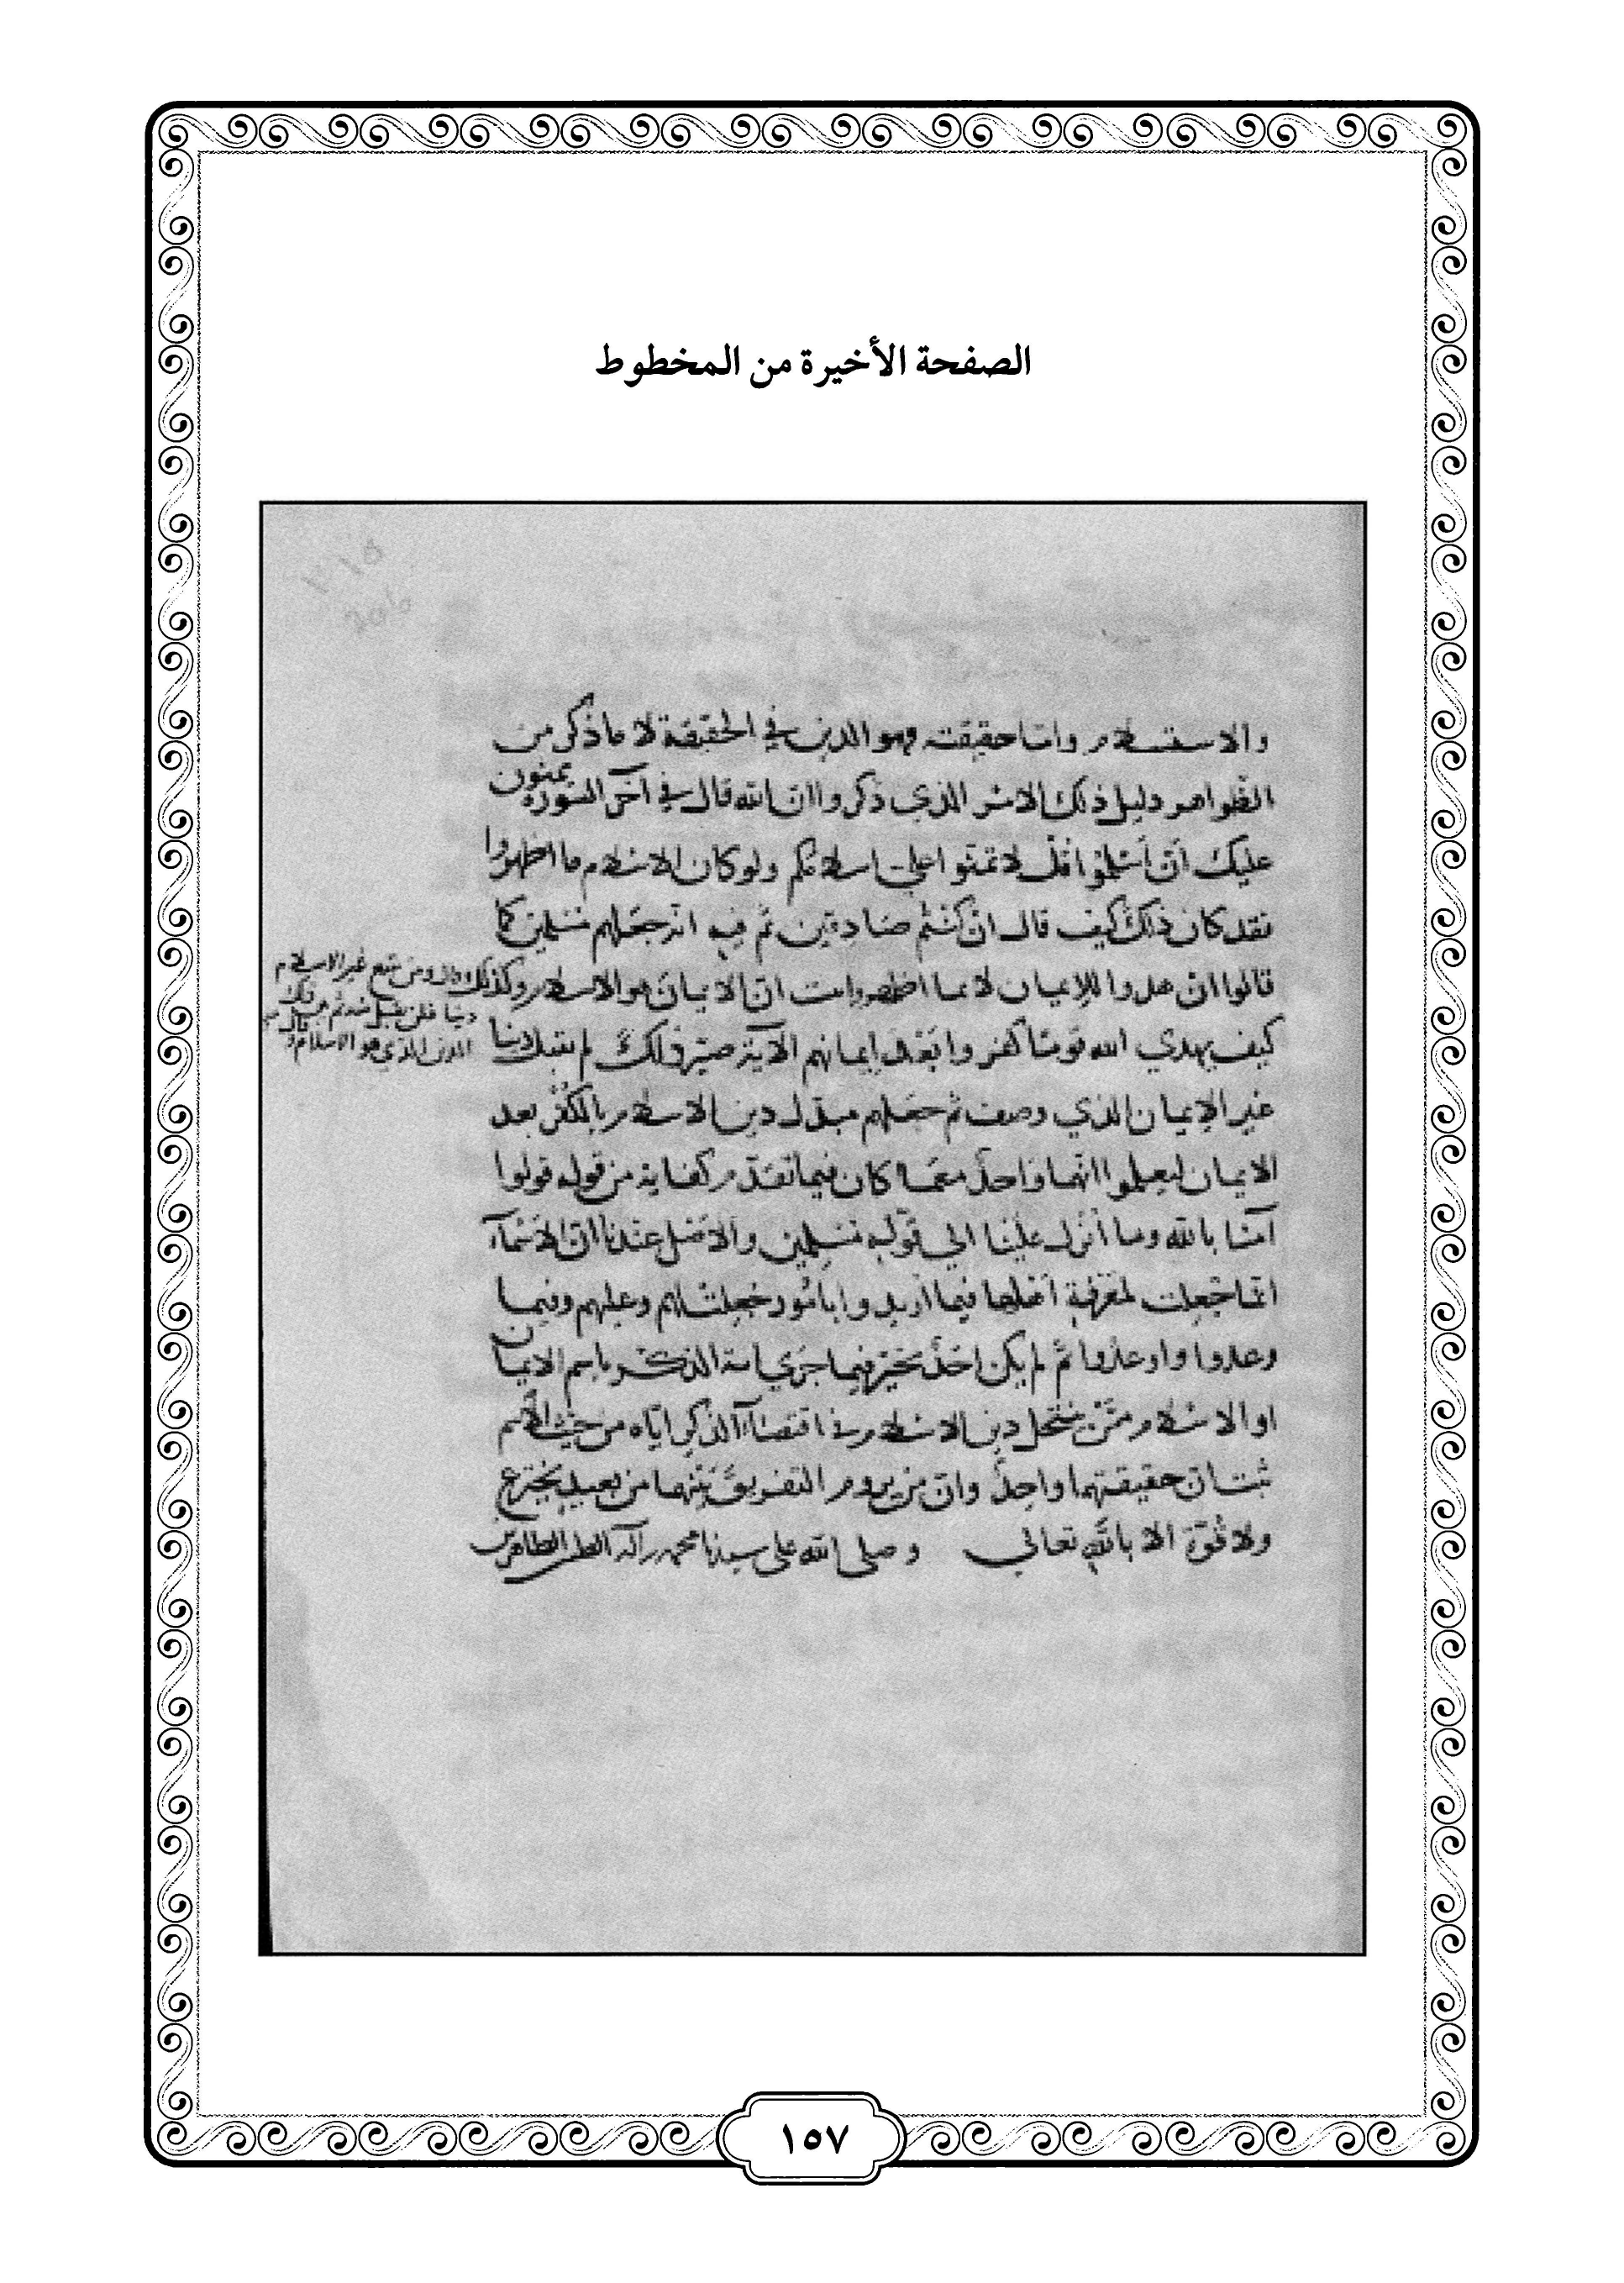 الصفحة الأخيرة من المخطوط
والاستسلام واما حقيقته فهو الدين في الحقيقة لا ما ذكر من
الظواهر دليل ذلك الذي ذكروا ان الله قال في آخر السورة يمنون
عليك أن أسلموا قل لا تمنوا علي اسلامكم ولو كان الاسلام ما اظهروا
فقد كان ذلك كيف قال ان كنتم صادقين ثم فيه انه جعلهم مسلمين كما
قالوا ان هدوا للايمان لا بما اظهروا ثبت ان الايمان هو الاسلام وكذلك
قال ومن يبتغ غير الاسلام
دينا فلن يقبل منه ثم
الدين الذي هو الاسلام
كيف يهدي الله قوما كفروا بعد ايمانهم الآية صير ذلك لم يقبل دينا
غير الايمان الذي وصف ثم جعلهم مبدل دين الاسلام بالكفر بعد
الايمان ليعلموا انهما واحد كان فيما تقدم كفاية من قوله قولوا
آمنا بالله وما أنزل علينا الى قوله مسلمين والاصل عندنا ان الاسماء
انما جعلت لمعرفة اهلها فيما اريدوا بامور جعلت لهم وعليهم وفيما
وعدوا واوعدوا ثم لم يكن احد فيما جرى به الذكر باسم الايمان
او الاسلام ممن ينتحل دين الاسلام في اقتضاء الذكر اياه من حيث الاسم
ثبت ان حقيقتهما واحد وان من يروم التفريق بينهما من بعيد يخترع
ولا قوة الا بالله تعالى وصلى الله على سيدنا محمد وآله الطاهرين
١٥٧